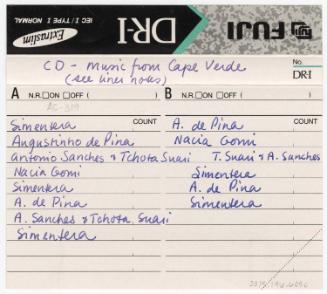 Extraslim
IEC I / TYPE I NORMAL
DR-I
FUJI
CD - Music from Cape Verde
(see liner notes)
No.
DR-I
A N.R. □ON □OFF ( ) B N.R. □ON □OFF ( )
COUNT COUNT
Simentera A. de Pina
Angustinho de Pina Nacia Gomi
Antonio Sanches & Tchota Suari T. Suari & A. Sanches
Nacia Gomi Simentera
Simentera A. de Pina
A. de Pina Simentera
A. Sanches & Tchota Suari
Simentera